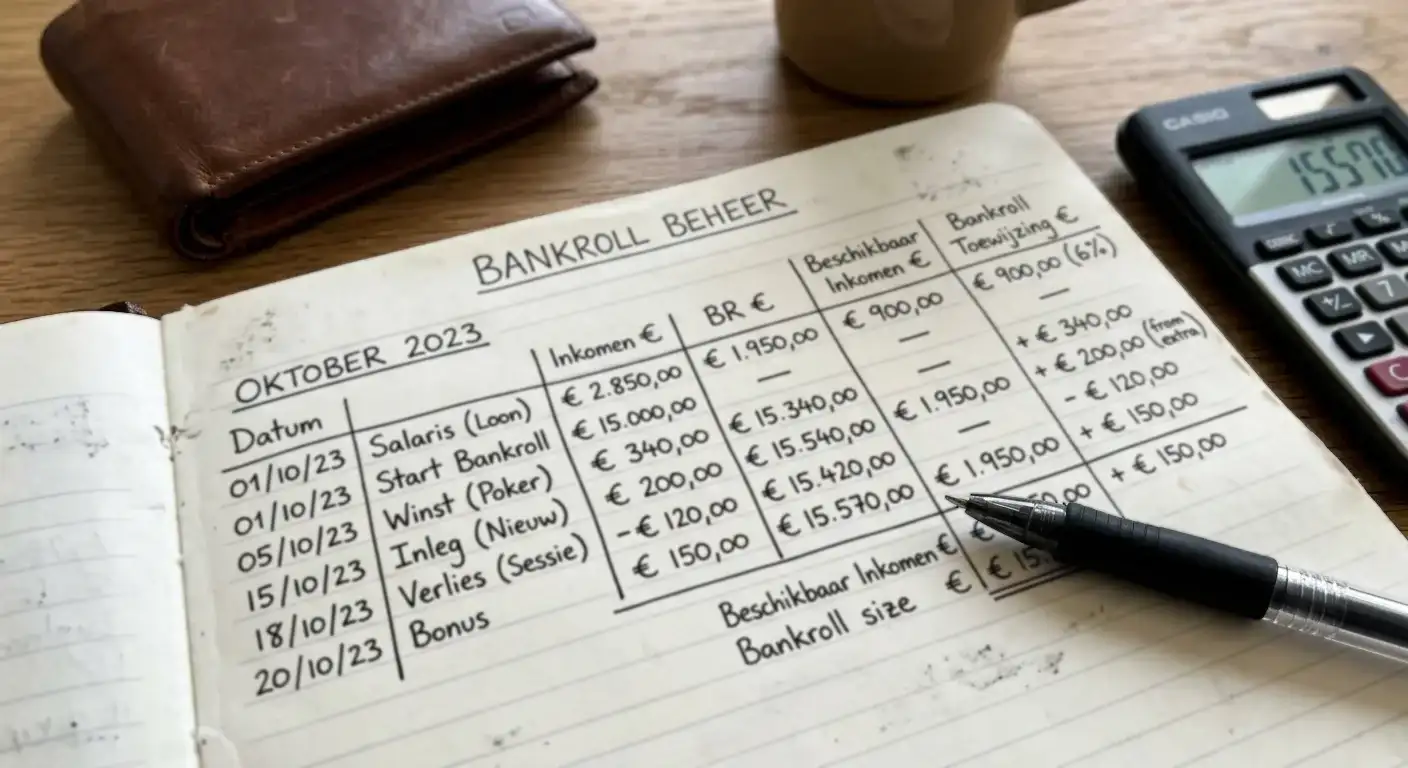 BANKROLL BEHEER
OKTOBER 2023
Datum Inkomen € BR € Beschikbaar Inkomen € Bankroll Toewijzing €
01/10/23 Salaris (Loon) € 2.850,00 € 1.950,00 € 900,00 € 900,00 (6%)
01/10/23 Start Bankroll € 15.000,00 — — —
05/10/23 Winst (Poker) € 340,00 € 15.340,00 — + € 340,00
15/10/23 Inleg (Nieuw) € 200,00 € 15.540,00 € 1.950,00 + € 200,00 (from extra)
18/10/23 Verlies (Sessie) - € 120,00 € 15.420,00 — - € 120,00
20/10/23 Bonus € 150,00 € 15.570,00 € 1.950,00 + € 150,00
+ € 150,00
Beschikbaar Inkomen €
Bankroll size €
CASIO
15570
MC MR
+/- 7
C